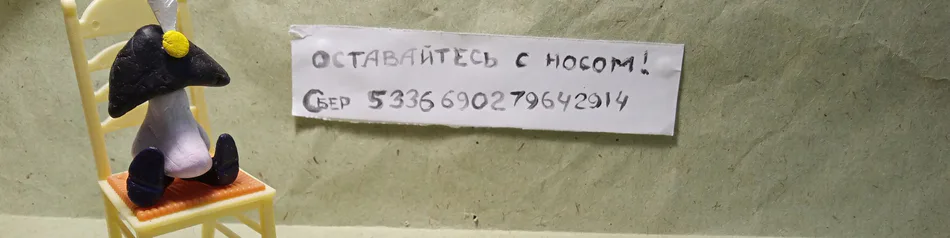 ОСТАВАЙТЕСЬ С НОСОМ!
СБЕР 5336690279642914